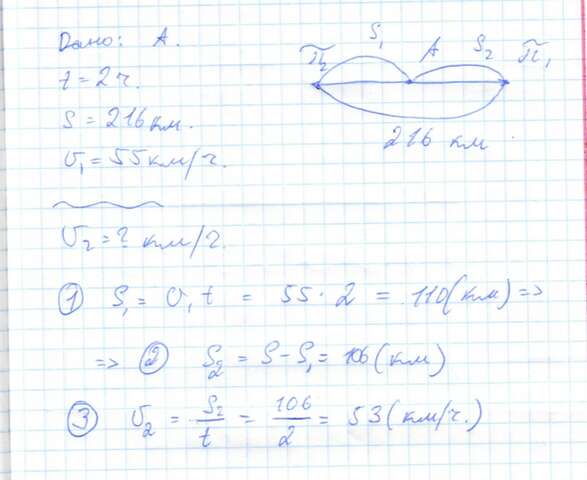 Дано: А.
t = 2 ч.
S = 216 км.
υ₁ = 55 км/ч.
υ₂ = ? км/ч.
S₁ А S₂
П₂ П₁
216 км
① S₁ = υ₁ t = 55 · 2 = 110 (км) =>
=> ② S₂ = S - S₁ = 106 (км)
③ υ₂ = S₂/t = 106/2 = 53 (км/ч.)